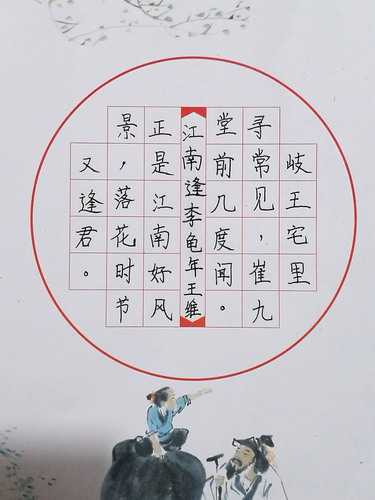 岐王宅里
寻常见，崔九
堂前几度闻。
江南逢李龟年王维
正是江南好风
景，落花时节
又逢君。